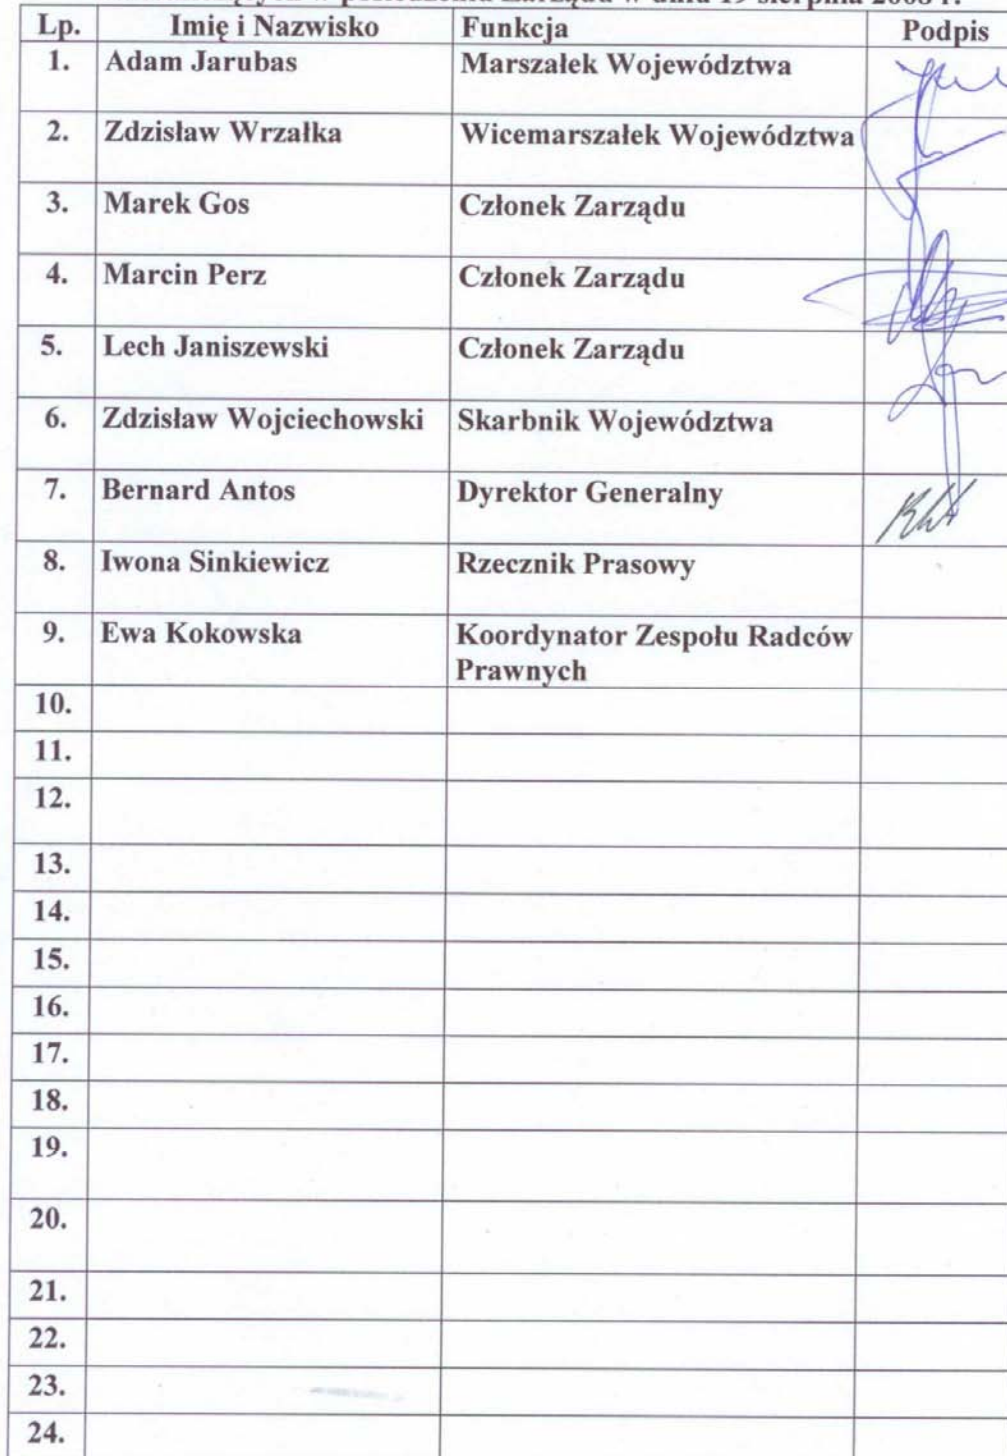 w posiedzeniu Zarządu w dniu 19 sierpnia 2008 r.
Lp. Imię i Nazwisko Funkcja Podpis
1. Adam Jarubas Marszałek Województwa
2. Zdzisław Wrzałka Wicemarszałek Województwa
3. Marek Gos Członek Zarządu
4. Marcin Perz Członek Zarządu
5. Lech Janiszewski Członek Zarządu
6. Zdzisław Wojciechowski Skarbnik Województwa
7. Bernard Antos Dyrektor Generalny
8. Iwona Sinkiewicz Rzecznik Prasowy
9. Ewa Kokowska Koordynator Zespołu Radców
Prawnych
10.
11.
12.
13.
14.
15.
16.
17.
18.
19.
20.
21.
22.
23.
24.